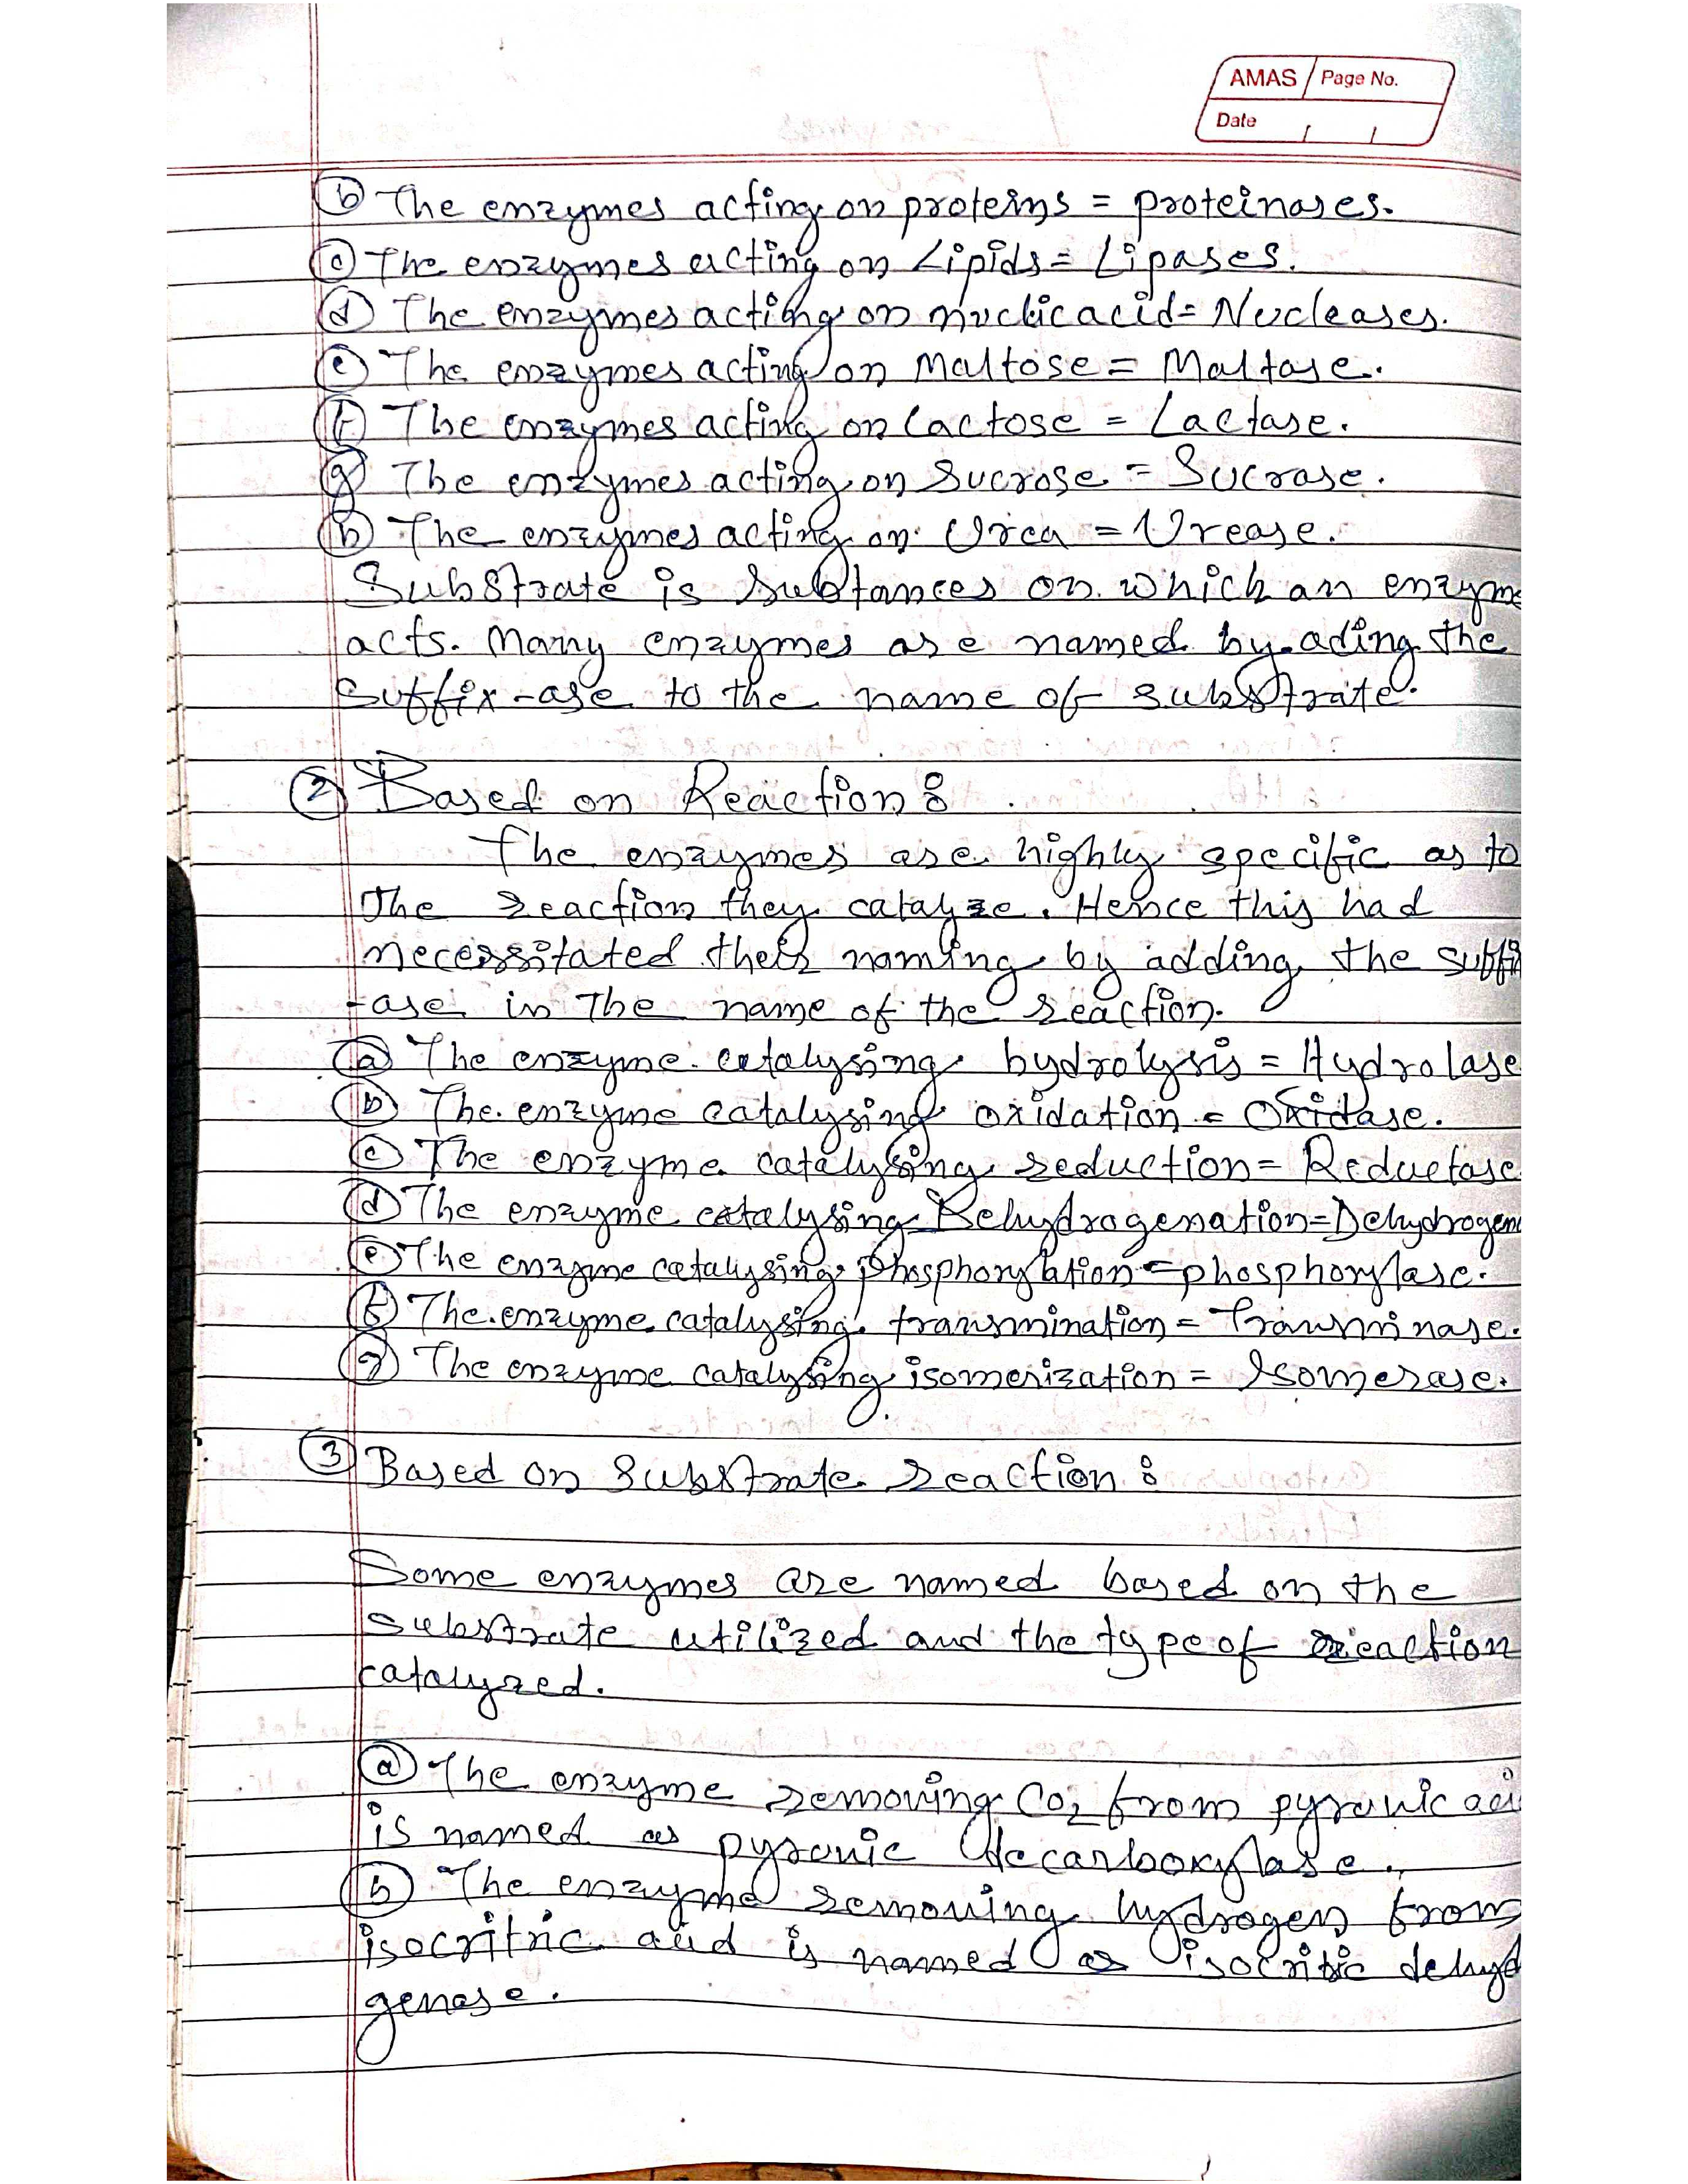 AMAS Page No.
Date
(b) The enzymes acting on proteins = proteinases.
(c) The enzymes acting on Lipids = Lipases.
(d) The enzymes acting on nuclic acid = Nucleases.
(e) The enzymes acting on Maltose = Maltase.
(f) The enzymes acting on Lactose = Lactase.
(g) The enzymes acting on Sucrose = Sucrase.
(h) The enzymes acting on Urea = Urease.
Substrate is subtances on which an enzyme
acts. Many enzymes are named by ading the
suffix -ase to the name of substrate.
(2) Based on Reaction :
The enzymes are highly specific as to
the reaction they catalyze. Hence this had
necessitated their naming by adding the suffi
-ase in the name of the reaction.
(a) The enzyme catalysing hydrolysis = Hydrolase
(b) The enzyme catalysing oxidation = Oxidase.
(c) The enzyme catalysing reduction = Reductase
(d) The enzyme catalysing Dehydrogenation = Dehydrogen
(e) The enzyme catalysing phosphorylation = phosphorylase.
(f) The enzyme catalysing transmination = Transminase.
(g) The enzyme catalysing isomerization = Isomerase.
(3) Based on Substrate reaction :
Some enzymes are named based on the
substrate utilized and the type of reaction
catalyzed.
(a) The enzyme removing CO2 from pyruvic aci
is named as pyruvic decarboxylase.
(b) The enzyme removing hydrogen from
isocritric acid is named as isocritic dehyd
genase.